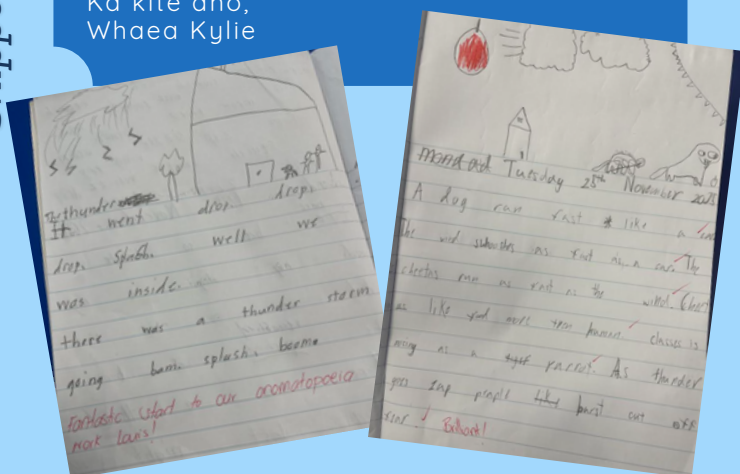 Ka kite ano,
Whaea Kylie
The thunder
It went drop drop.
drop. Splash. well we
was inside.
there was a thunder storm
going bam. splash. boome
Fantastic start to our onomatopoeia
work Louis!
Tuesday 25th November 2025
A dog ran fast like a
The wind as fast as a car. The
cheetas run as fast as the wind.
as like and more than human classes is
as a parrot. As thunder
goes zap people burst out
fear. Brilliant!